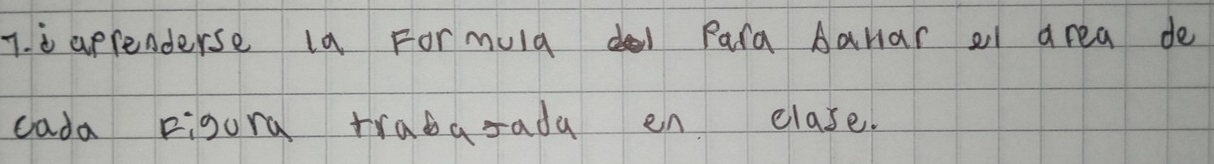 7. è aprenderse la Formula del Para Aallar el area de
cada Figura trabajada en clase.